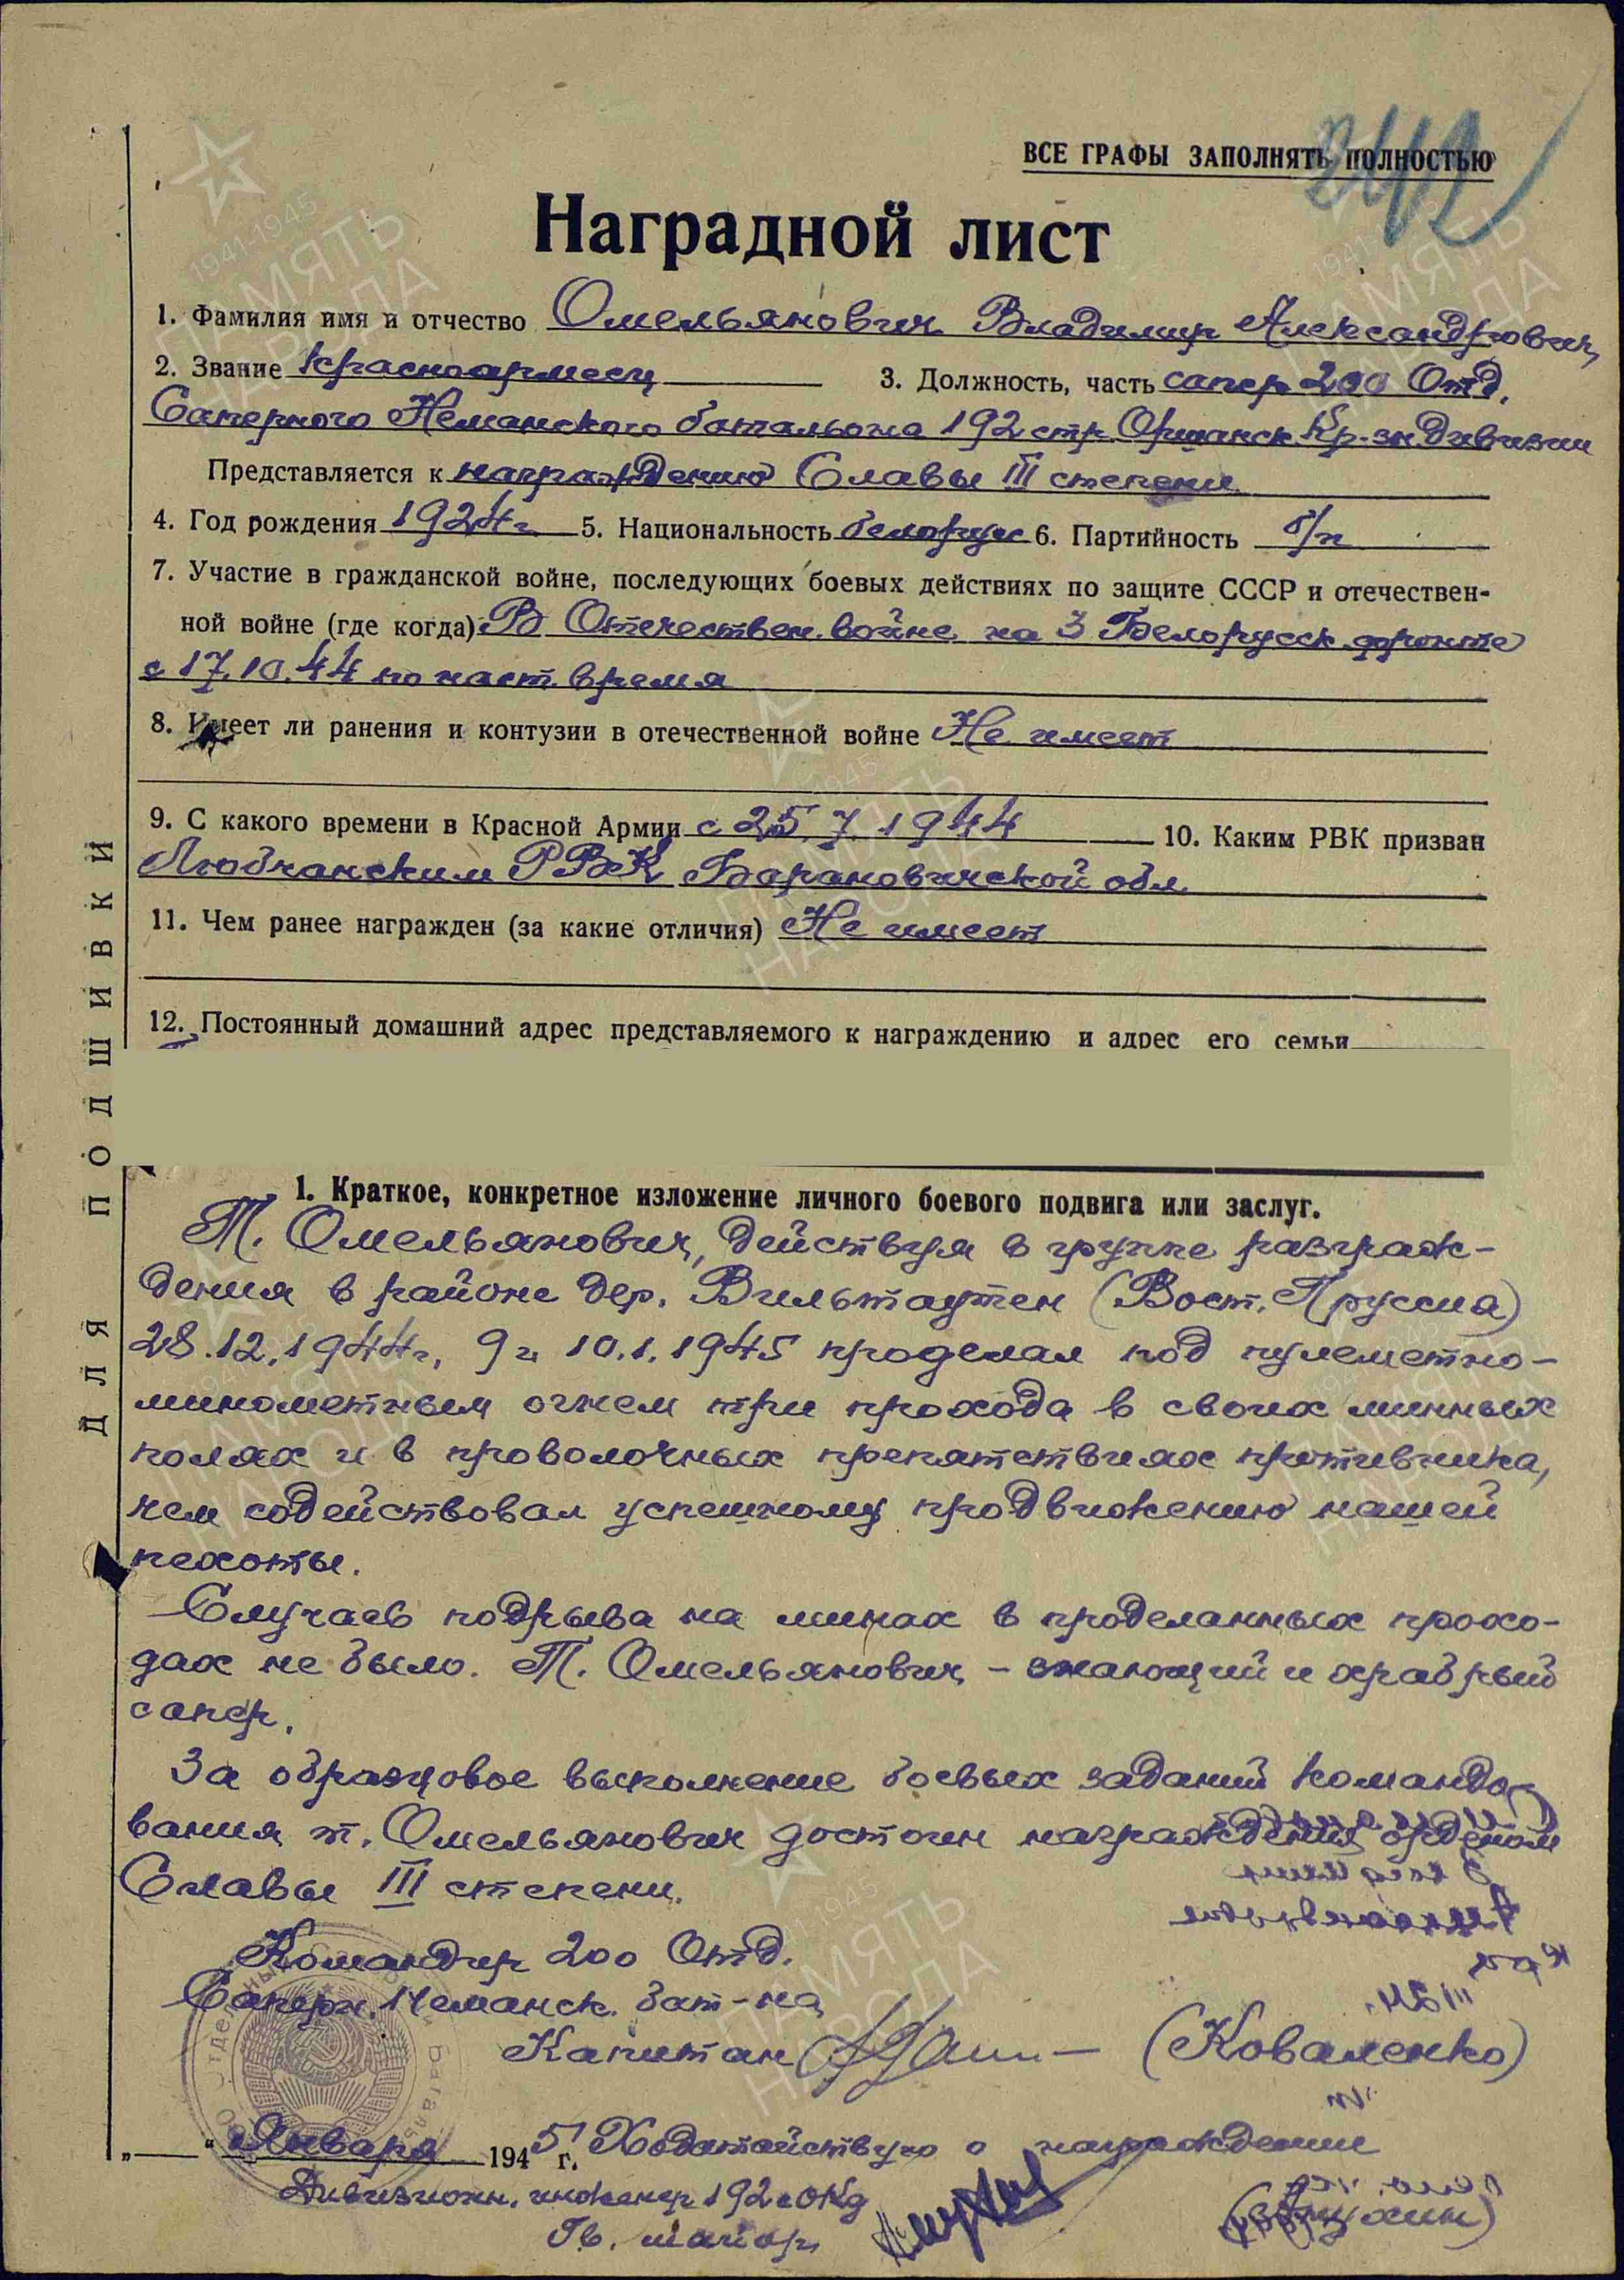 ВСЕ ГРАФЫ ЗАПОЛНЯТЬ ПОЛНОСТЬЮ
Наградной лист
1. Фамилия имя и отчество Омельянович Владимир Александрович,
2. Звание Красноармеец 3. Должность, часть сапер 200 Отд.
Саперного Неманского батальона 192 стр. Оршанск. Кр-зн. Дивизии
Представляется к награждению Славы III степени
4. Год рождения 1924 г. 5. Национальность белорус 6. Партийность б/п
7. Участие в гражданской войне, последующих боевых действиях по защите СССР и отечествен-
ной войне (где когда) В Отечествен. войне на 3 Белорусск. фронте
с 17.10.44 по наст. время
8. Имеет ли ранения и контузии в отечественной войне Не имеет
9. С какого времени в Красной Армии с 25.7.1944 10. Каким РВК призван
Любчанским РВК Барановичской обл.
11. Чем ранее награжден (за какие отличия) Не имеет
12. Постоянный домашний адрес представляемого к награждению и адрес его семьи
ДЛЯ ПОДШИВКИ
1. Краткое, конкретное изложение личного боевого подвига или заслуг.
Т. Омельянович, действуя в группе разграж-
дения в районе дер. Вильтаутен (Вост. Пруссия)
28.12.1944 г., 9 и 10.1.1945 проделал под пулеметно-
минометным огнем три прохода в своих минных
полях и в проволочных препятствиях противника,
чем содействовал успешному продвижению нашей
пехоты.
Случаев подрыва на минах в проделанных прохо-
дах не было. Т. Омельянович - знающий и храбрый
сапер.
За образцовое выполнение боевых заданий командо-
вания т. Омельянович достоин награждения орденом
Славы III степени.
Командир 200 Отд.
Саперн. Неманск. бат-на
Капитан (Коваленко)
"___" Января 1945 г. Ходатайствую о награждении
Дивизионн. инженер 192 сОКд
Гв. майор
1941-1945
ПАМЯТЬ
НАРОДА